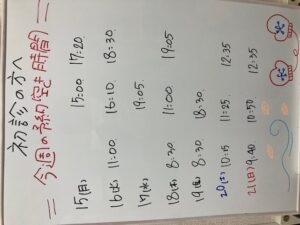 初診の方へ
= 今週の予約空き時間 =
15(月) 15:00 17:20
16(火) 11:00 16:10 18:30
17(水) 19:05
18(木) 8:30 11:00 19:05
19(金) 8:30 18:30
20(土) 10:15 11:25 12:35
21(日) 9:40 10:50 12:35